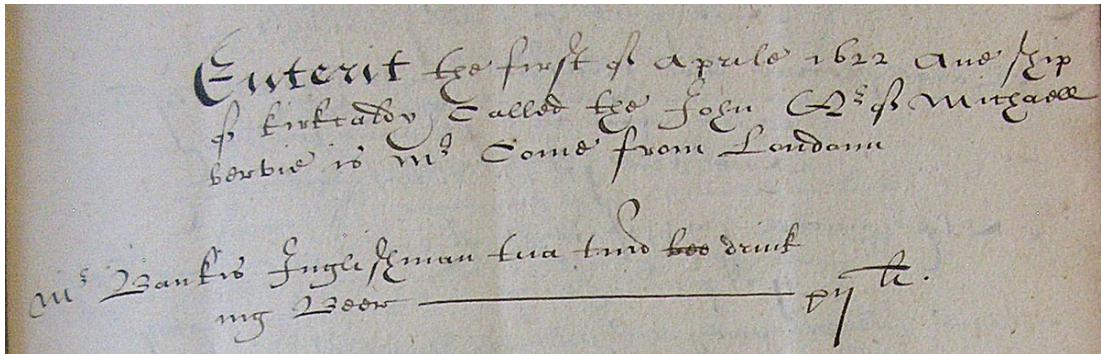 Enterit the first of Aprile 1622 Ane ship
of kirkcaldy Called the John Qrof Michaell
bervie is mr Come from Londoun
Mr Bankis Inglishman tua tun bee drink
ing Beer xij lb.